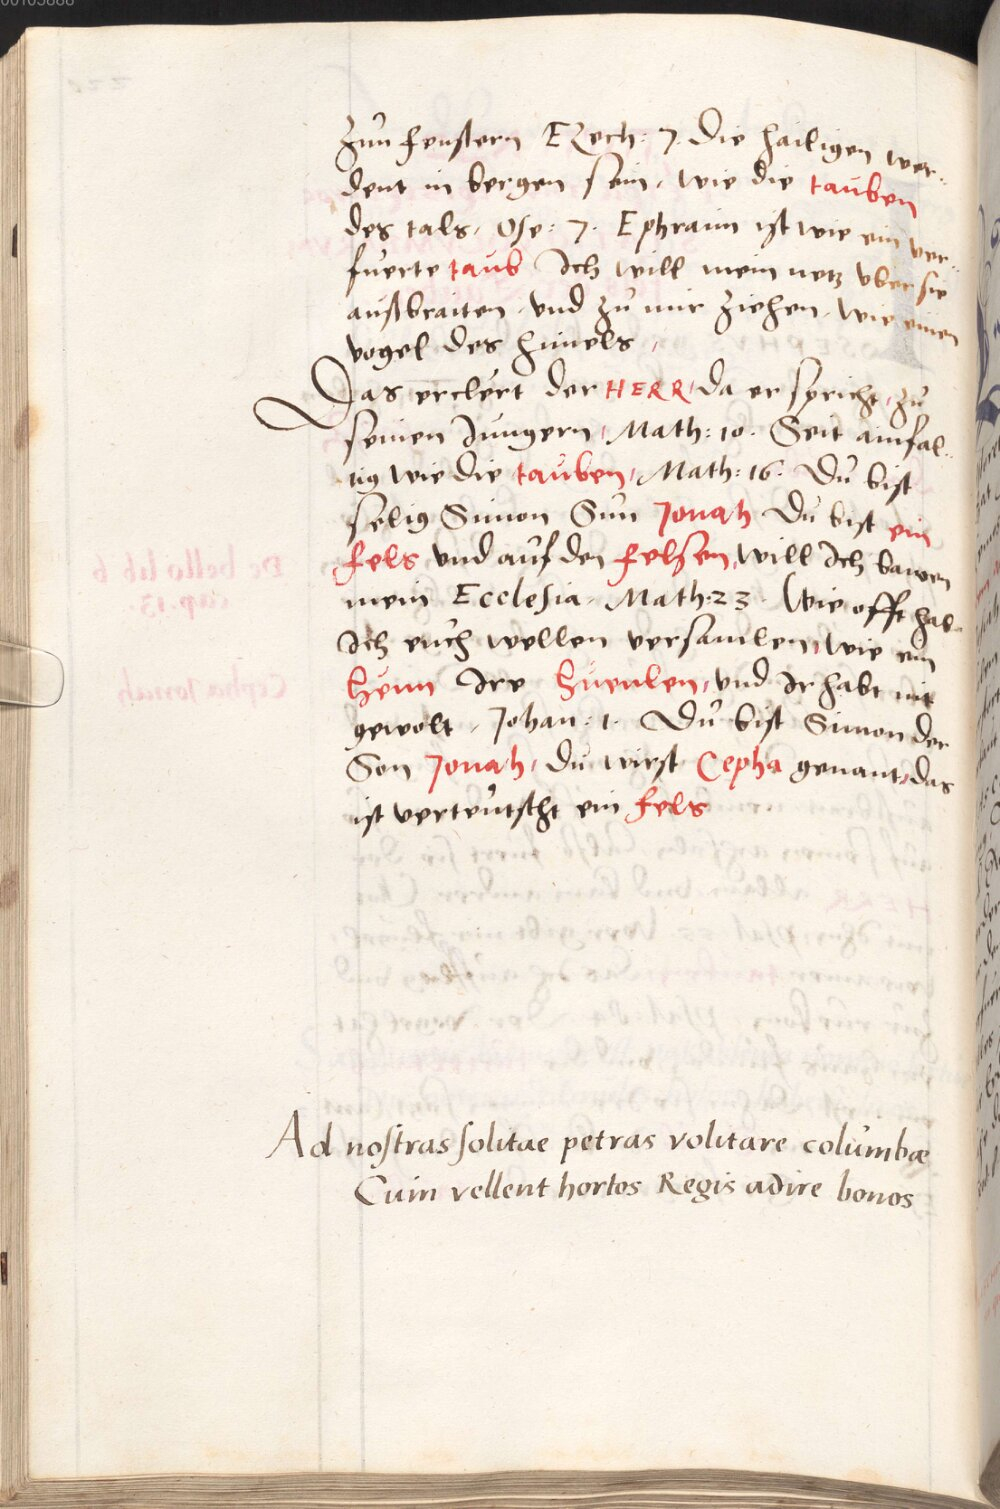 00103888
Zun fenstern EZech: 7. Die hailigen wer-
dent in bergen sein, wie die tauben
des tals, Ose: 7. Ephraim ist wie ein ver-
fuerte taub Ich will mein netz vber sie
außbraiten, vnd zu mir ziehen, wie einen
vogel des himels,
Das erclert der HERR, da er spricht, zu
seinen Jungern, Math: 10. Seit ainfal-
tig wie die tauben, Math: 16. Du bist
selig Simon Sun Jonah Du bist ein
fels vnd auf den felsen, will Ich bawen
mein Ecclesia. Math: 23. Wie offt hab
Ich euch wellen versamlen, wie ein
henn Ire huenlen, vnd Ir habt nit
gewolt, Johan: 1. Du bist Simon der
Son Jonah, du wirst Cepha genant, das
ist verteutscht ein fels
Ad nostras solitae petras volitare columbæ
Cum vellent hortos Regis adire bonos